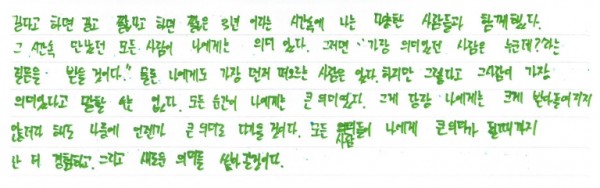 길다고 하면 길고 짧다고 하면 짧은 3년 이라는 시간속에 나는 많은 사람들과 함께했다.
그 시간속 만났던 모든 사람이 나에게는 의미 있다. 그러면 "가장 의미있던 사람은 누군데?라는
질문을 받을 것이다." 물론 나에게도 가장 먼저 떠오르는 사람은 있다. 하지만 그렇다고 그사람이 가장
의미있다고 말할 수는 없다. 모든 순간이 나에게는 큰 의미였다. 그게 당장 나에게는 크게 받아들여지지
않더라 해도 나중에 언젠가 큰 의미로 다가올 것이다. 모든 사람들이 나에게 큰 의미가 될때까지
난 더 경험하고, 그리고 새로운 의미를 쌓아 갈것이다.